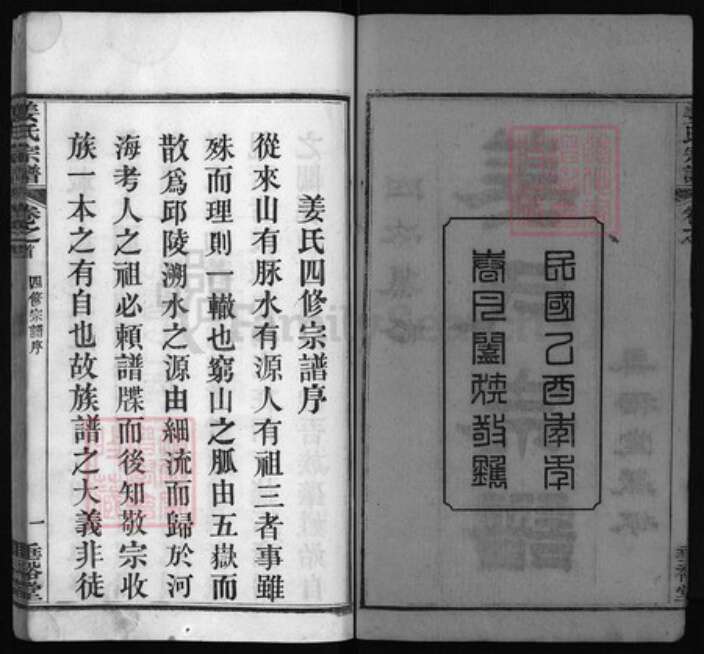 民國乙酉年季
春月闔族敬鐫
姜氏宗譜
姜氏四修宗譜序
從來山有脉水有源人有祖三者事雖
殊而理則一轍也窮山之脈由五嶽而
散爲邱陵溯水之源由細流而歸於河
海考人之祖必頼譜牒而後知敬宗收
族一本之有自也故族譜之大義非徒
姜氏宗譜 卷之首 四修宗譜序 一 垂裕堂